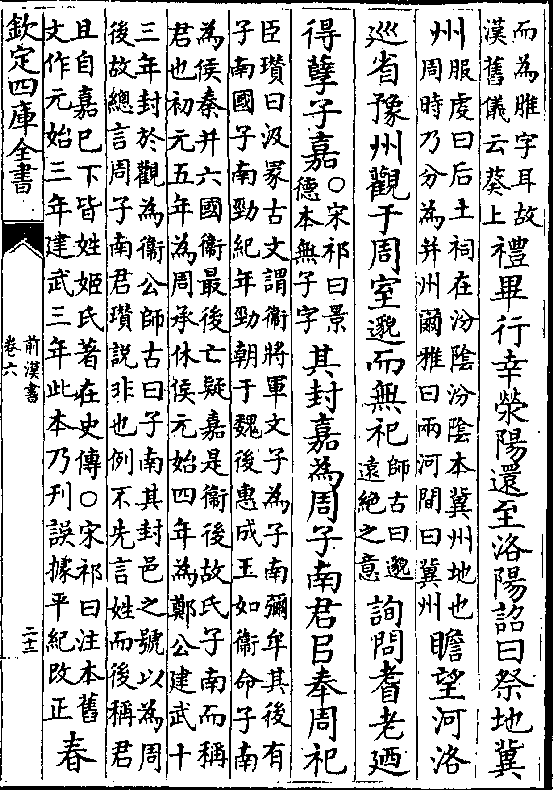 而為脽字耳故
漢舊儀云葵上
禮畢行幸滎陽還至洛陽詔曰祭地冀
州
服虔曰后土祠在汾陰汾陰本冀州地也
周時乃分為并州爾雅曰兩河間曰冀州
瞻望河洛
巡省豫州觀于周室邈而無祀
師古曰邈
逺絶之意
詢問耆老廼
得孽子嘉
○宋祁曰景
德本無子字
其封嘉為周子南君㠯奉周祀
臣瓚曰汲冢古文謂衞將軍文子為子南彌牟其後有
子南國子南勁紀年勁朝于魏後惠成王如衞命子南
為侯秦并六國衞最後亡疑嘉是衞後故氏子南而稱
君也初元五年為周承休侯元始四年為鄭公建武十
三年封於觀為衞公師古曰子南其封邑之號以為周
後故總言周子南君瓚說非也例不先言姓而後稱君
且自嘉已下皆姓姬氏著在史傳○宋祁曰注本舊
文作元始三年建武三年此本乃刋誤據平紀改正
春
欽定四庫全書
前漢書
卷六